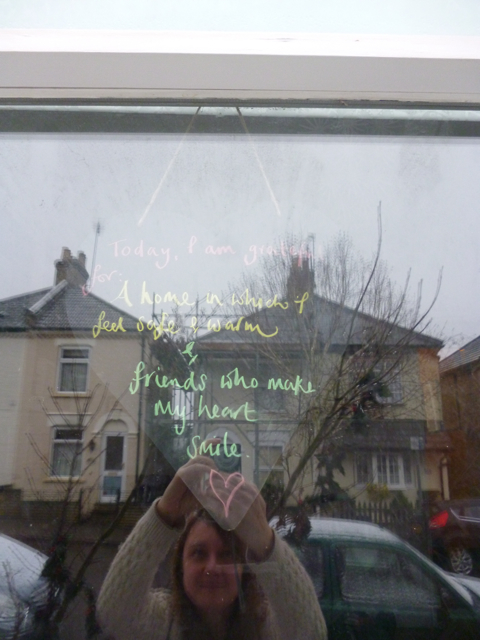 Today, I am grateful
for:
A home in which I
feel safe & warm
&
friends who make
my heart
smile.